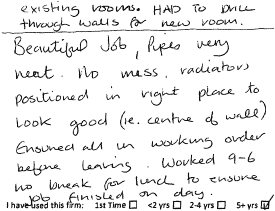 existing rooms. HAD TO DRILL
through walls for new room.
Beautiful Job, Pipes very
neat. No mess, radiators
positioned in right place to
look good (ie. centre of wall)
Ensured all in working order
before leaving. Worked 9-6
no break for lunch to ensure
job finished on day.
I have used this firm: 1st Time <2 yrs 2-4 yrs 5+ yrs